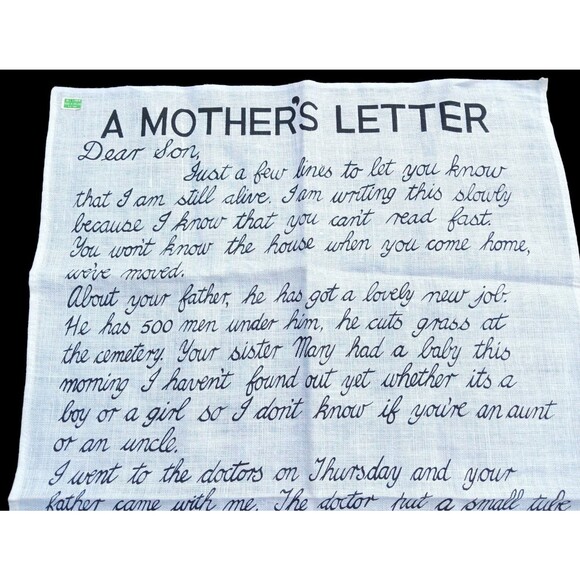 A MOTHER'S LETTER
Dear Son,
Just a few lines to let you know
that I am still alive. I am writing this slowly
because I know that you can't read fast.
You won't know the house when you come home,
we've moved.
About your father, he has got a lovely new job.
He has 500 men under him, he cuts grass at
the cemetery. Your sister Mary had a baby this
morning I haven't found out yet whether its a
boy or a girl so I don't know if you're an aunt
or an uncle.
I went to the doctors on Thursday and your
father came with me. The doctor put a small tube